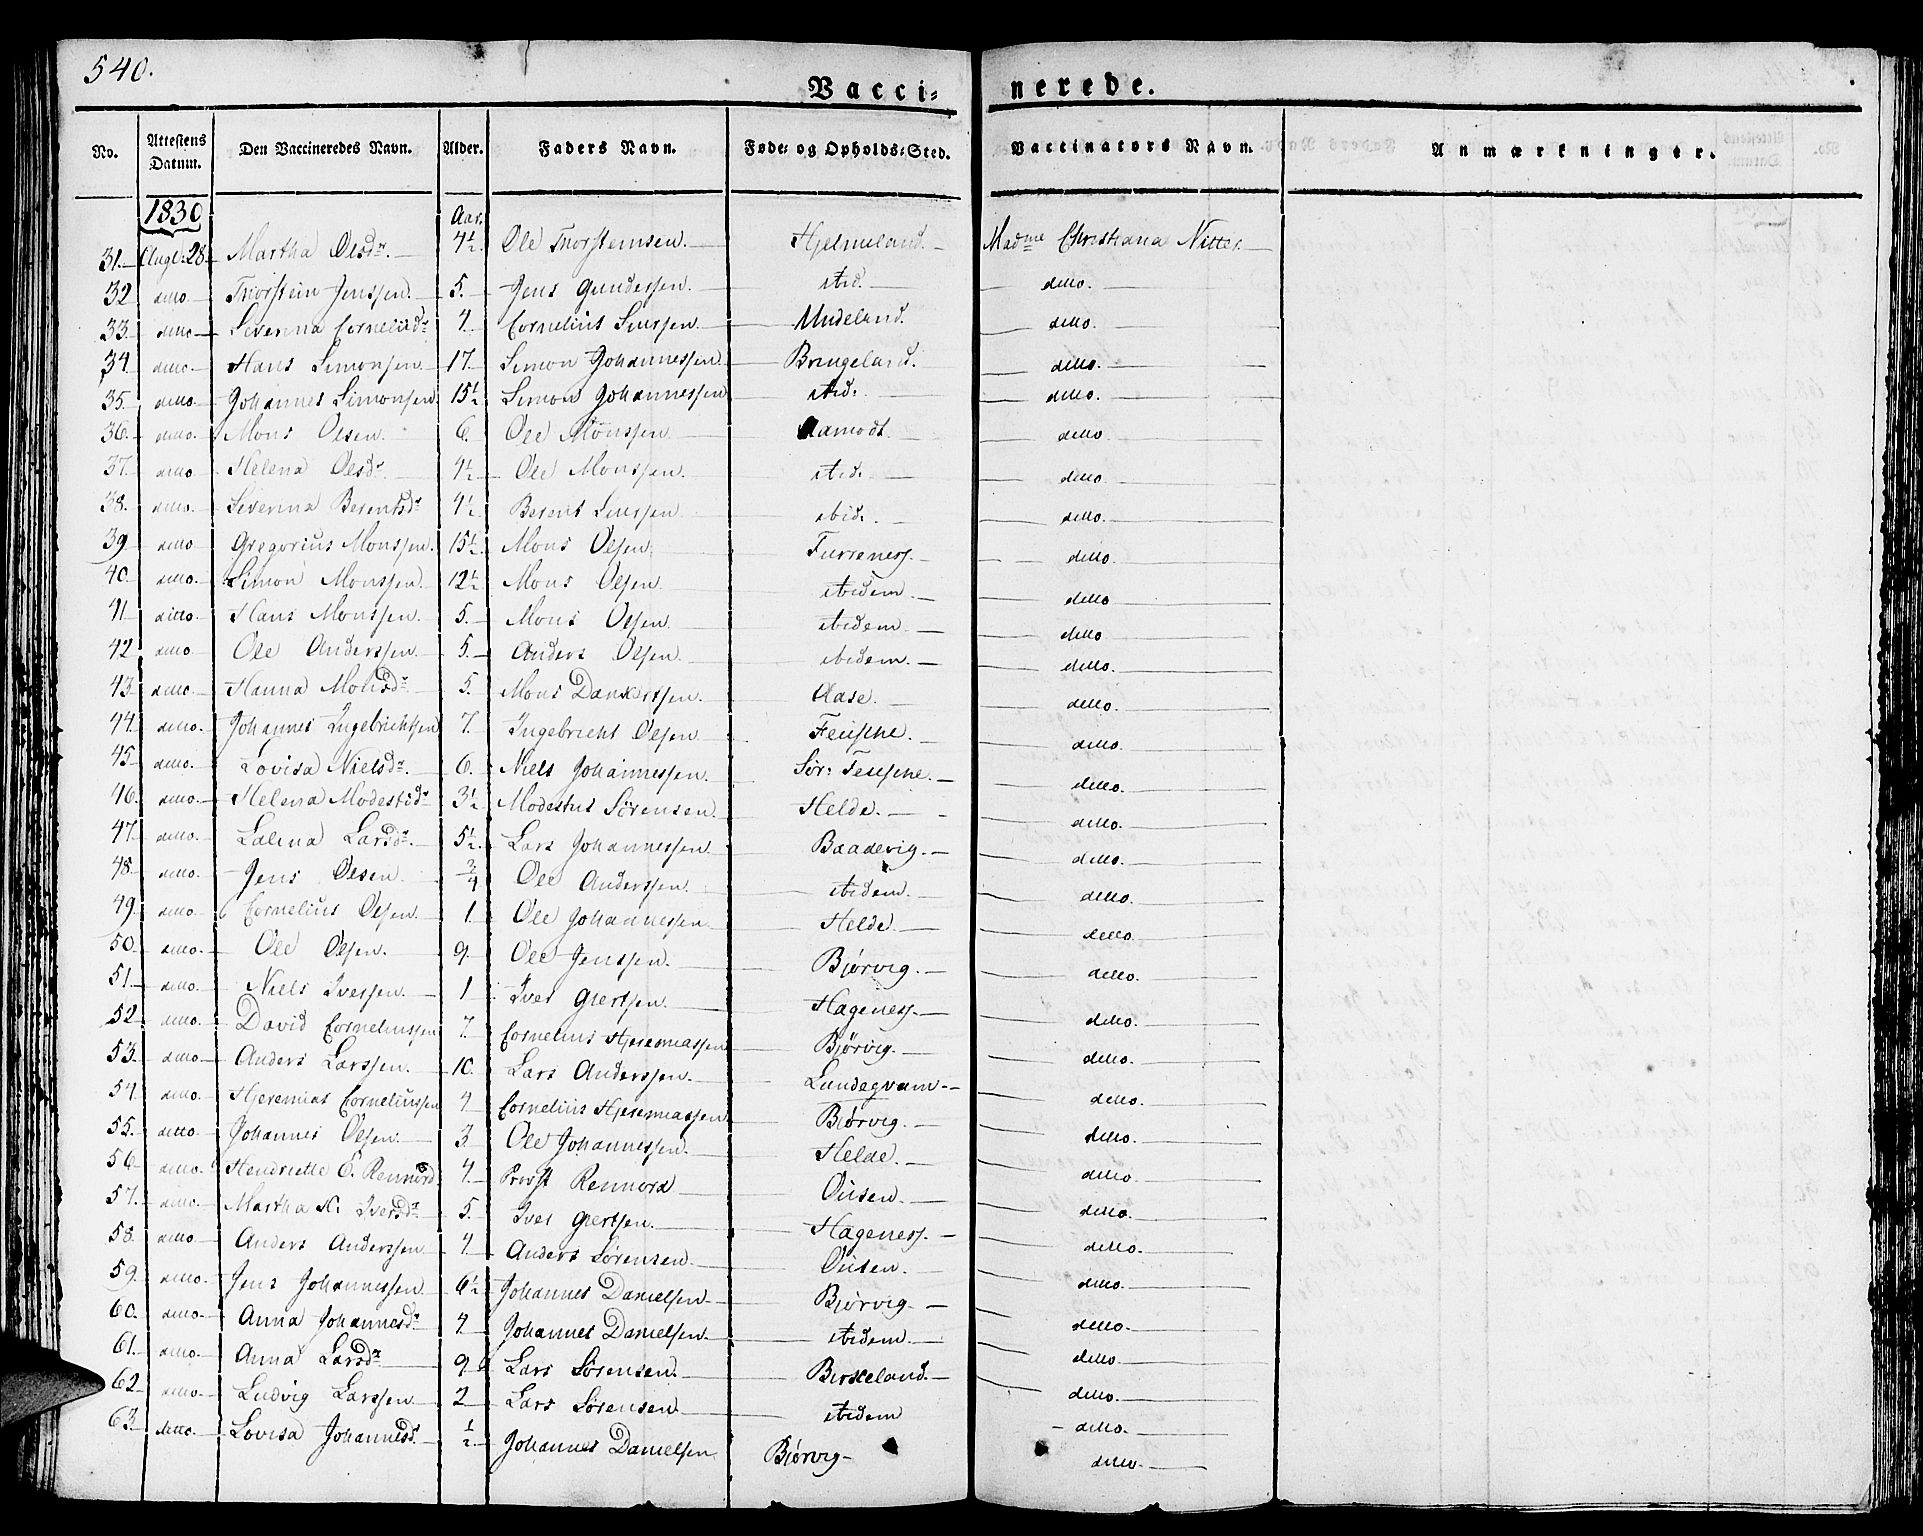 540.
Vacci= nerede.
No. Attestens Datum. Den Vaccineredes Navn. Alder. Faders Navn. Føde= og Opholds=Sted. Vaccinators Navn. Anmærkninger.
1830 Aar.
31. Aug: 28. Martha Olsdr. 4½. Ole Thorstensen. Hjelmeland. Madme Christiana Nitter
32 ditto Thorstein Jenssen. 5. Jens Gundersen. ibid. ditto.
33. ditto Severina Corneliidr 4. Cornelius Siursen. Undeland. ditto.
34. ditto Hans Simonsen 17. Simon Johannessen Bringeland. ditto.
35. ditto. Johannes Simonsen 15½ Simon Johannessen ibid: ditto.
36. ditto. Mons Olsen. 6. Ole Monssen Aamodt. ditto
37. ditto Helena Olsdr 4½ Ole Monssen. ibid. ditto.
38. ditto. Severina Berentsdr 4½ Berent Siursen ibid. ditto.
39 ditto Gregorius Monssen. 15½ Mons Olsen. Furreness. ditto.
40. ditto. Simon Monssen. 12½ Mons Olsen ibidem. ditto
41 ditto. Hans Monssen. 5. Mons Olsen ibidem ditto
42 ditto Ole Anderssen. 5. Anders Olsen. ibidem. ditto.
43. ditto Hanna Monsdr 5. Mons Dankertsen. Aase. ditto.
44. ditto. Johannes Ingebrichtsen 7. Ingebricht Olsen ditto.
45 ditto. Lovisa Nielsdr. 6. Niels Johannessen. Sør: ditto.
46. ditto. Helena Modestidr 3½ Modestus Sørensen. Helde. ditto.
47. ditto. Lars dr. 5½. Lars Johannessen Baadevig. ditto.
48. ditto. Jens Olsen. ¾ Ole Anderssen. ibidem. ditto.
49. ditto. Cornelius Olsen. 1. Ole Johannessen Helde. ditto.
50. ditto. Ole Olsen. 9. Ole Jenssen. Bjørvig. ditto.
51. ditto. Niels Iversen. 1 Iver Giertsen. Hageness. ditto.
52 ditto. David Corneliussen 7. Cornelius Hjeremiassen Bjørvig. ditto.
53. ditto Anders Larssen. 10. Lars Anderssen. Lundegram. ditto.
54. ditto. Hjeremias Corneliussen 4 Cornelius Hjeremiassen Bjørvig. ditto.
55. ditto. Johannes Olsen. 3. Ole Johannessen. Helde. ditto.
56 ditto. Henriette C. Rennord 4. Provst Rennord Ousen. ditto.
57. ditto. Martha N: Iversdr 5. Iver Giertsen. Hageness. ditto.
58. ditto. Anders Anderssen 4. Anders Sørensen. Ousen. ditto.
59. ditto. Jens Johannessen 6½ Johannes Danielsen Bjørvig. ditto.
60. ditto. Anna Johannesdr 4 Johannes Danielsen. ibidem. ditto.
61. ditto. Anna Larsdr 9 Lars Sørensen. Birkeland. ditto.
62 ditto. Ludvig Larssen 2 Lars Sørensen ibidem ditto.
63. ditto. Lovisa Johannesd. ½ Johannes Danielsen Bjørvig ditto.